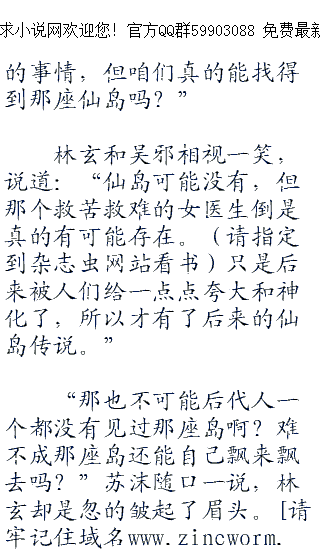 求小说网欢迎您! 官方QQ群59903088 免费最新
的事情，但咱们真的能找得
到那座仙岛吗？”
林玄和吴邪相视一笑，
说道：“仙岛可能没有，但
那个救苦救难的女医生倒是
真的有可能存在。（请指定
到杂志虫网站看书）只是后
来被人们给一点点夸大和神
化了，所以才有了后来的仙
岛传说。”
“那也不可能后代人一
个都没有见过那座岛啊？难
不成那座岛还能自己飘来飘
去吗？”苏沫随口一说，林
玄却是忽的皱起了眉头。[请
牢记住域名www.zincworm.